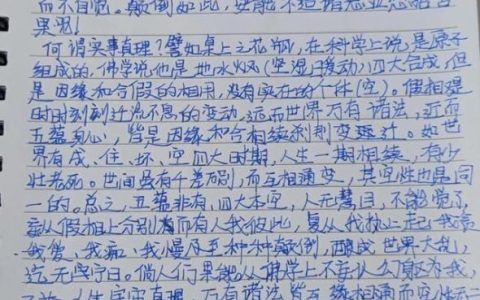 而不自觉。颠倒如此,安能不造诸恶业恶结苦
果呢!
何谓实事真理?譬如桌上之花瓶,在科学上说是原子
组成的,佛学说他是地水火风(坚湿暖动)四大合成,但
是因缘和合假的相用,没有实在的个体(空)。但相理
时时刻刻迁流不息的变动,远而世界万有诸法,近而
五蕴身心,皆是因缘和合相续刹刹变迁。如世
界有成、住、坏、空四大时期,人生一期相续,有少
壮老死。世间虽有千差万别,而互相通变,其空性也是同
一的。总之,五蕴非有,四大本空,人无慧目,不能觉了,
妄从假相上分别而有人我彼此,复从我执上起我贪
我爱、我痴、我慢乃至种种颠倒,酿成世界大乱,
迄无宁日。倘人们果能从佛学上不妄认四大为我,
人生宇宙真理,万有诸法皆互缘相通而空性不二